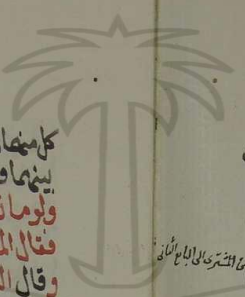 كل منهما
بينهما و
ولو ما
فقال الم
وقال ال
المشترى الى البايع الثانى